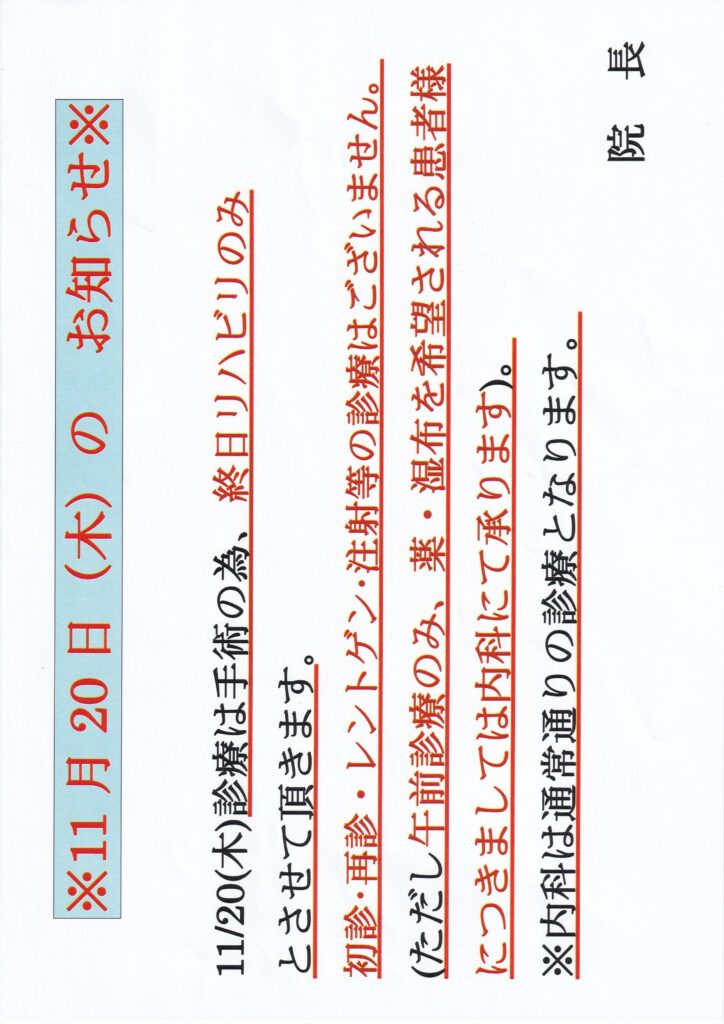 ※11月20日（木）の　お知らせ※
11/20(木)診療は手術の為、終日リハビリのみ
とさせて頂きます。
初診･再診・レントゲン･注射等の診療はございません。
(ただし午前診療のみ、薬・湿布を希望される患者様
につきましては内科にて承ります)。
※内科は通常通りの診療となります。
院　長